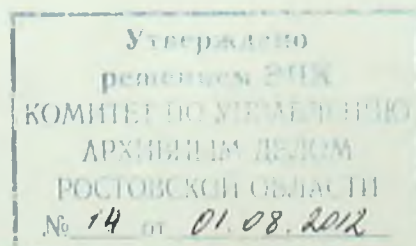 Утверждено
решением ЭПК
КОМИТЕТ ПО УПРАВЛЕНИЮ
АРХИВНЫМ ДЕЛОМ
РОСТОВСКОЙ ОБЛАСТИ
№ 14 от 01.08.2012